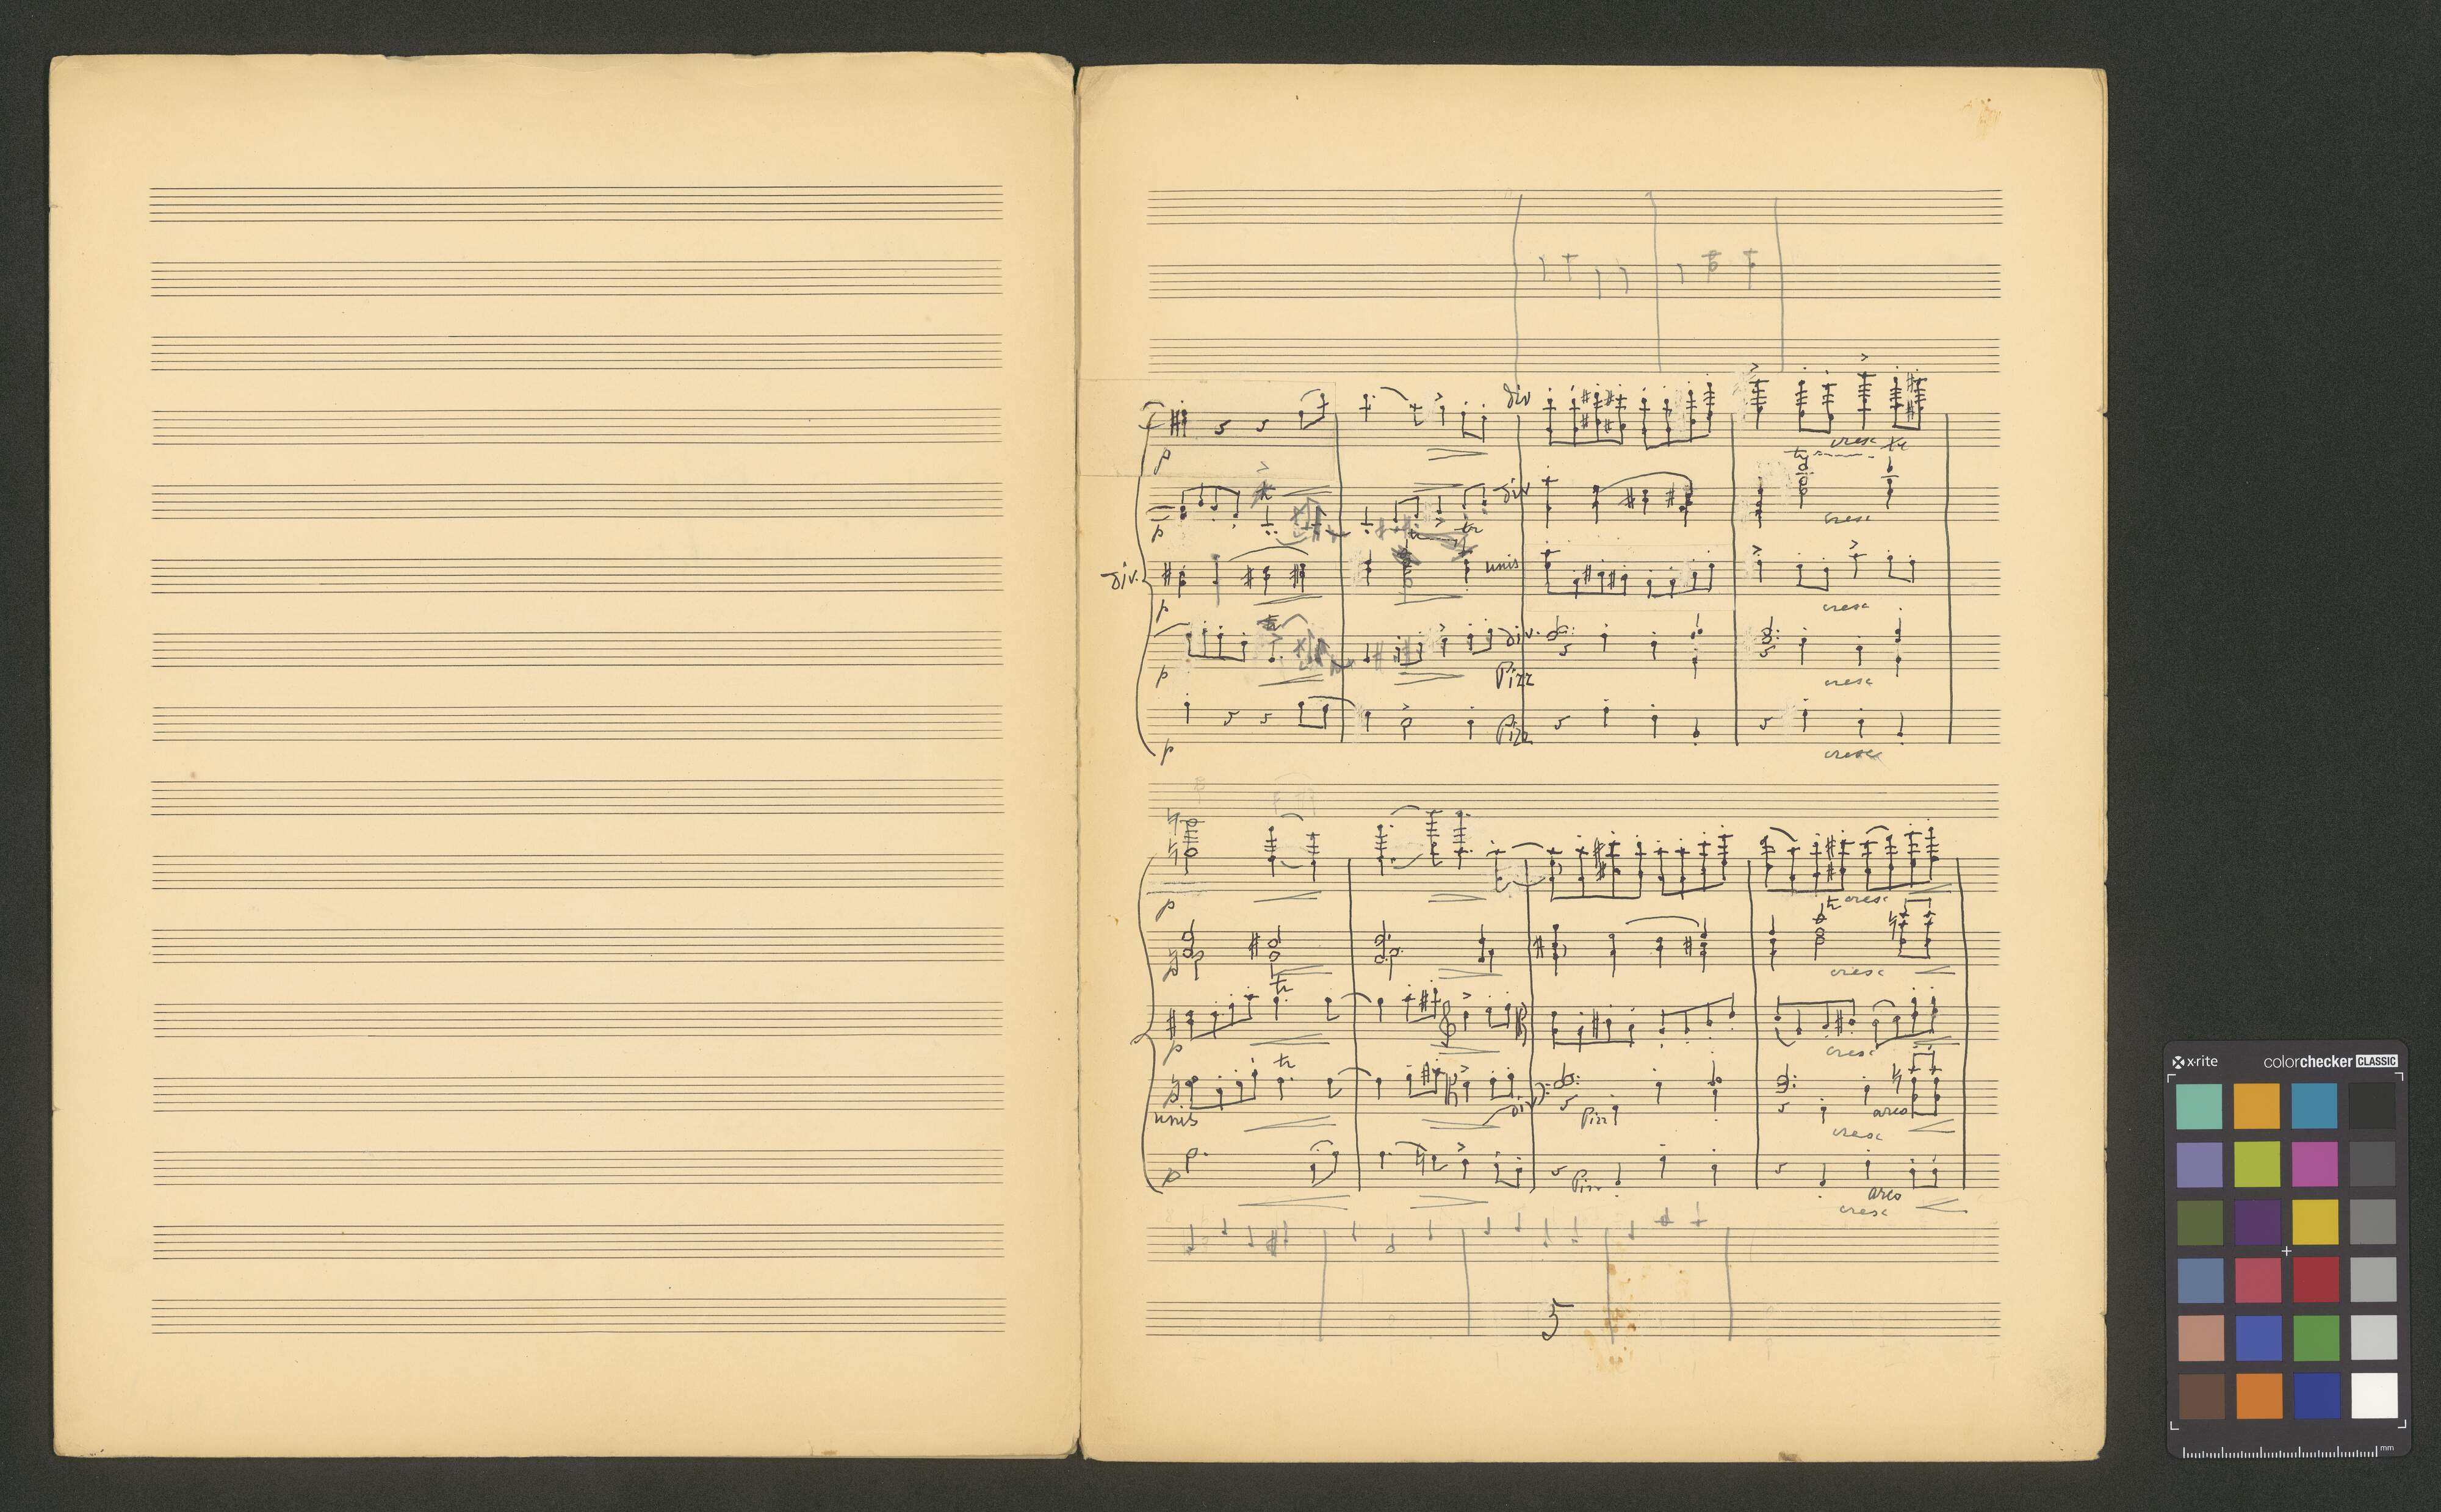 div
p
tr
cresc tr
div
p
cresc
tr
div.
unis
p
cresc
tr
div.
p
Pizz
cresc
Pizz
p
cresc
p
tr cresc
p
cresc
tr
p
cresc
x-rite colorchecker CLASSIC
tr
p
unis
div
Pizz
arco
cresc
p
Pizz
arco
cresc
5
mm